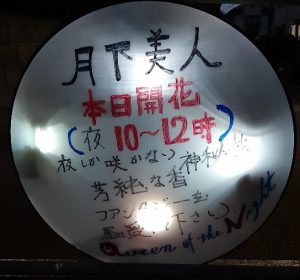 月下美人
本日開花
(夜10~12時)
夜しか咲かない神秘
な香
ファンタジーを
下さい
Queen of the Night